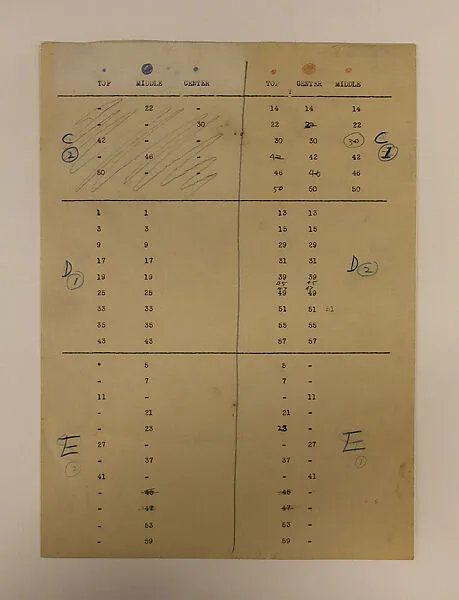 TOP MIDDLE CENTER TOP CENTER MIDDLE
- 22 - 14 14 14
- - 30 22 22 22
C 42 - - 30 30 30 C
2 - 46 - 42 42 42 1
50 - - 46 46 46
50 50 50
1 1 13 13
3 3 15 15
9 9 29 29
17 17 31 31 D 2
D 1 19 19 39 39
45 45
47 47
25 25 49 49
33 33 51 51 51
35 35 55 55
43 43 57 57
- 5 5 -
- 7 7 -
11 - - 11
- 21 21 -
- 23 23 -
E 27 - - 27 E
2 - 37 37 - 1
41 - - 41
- 45 45 -
- 47 47 -
- 53 53 -
- 59 59 -